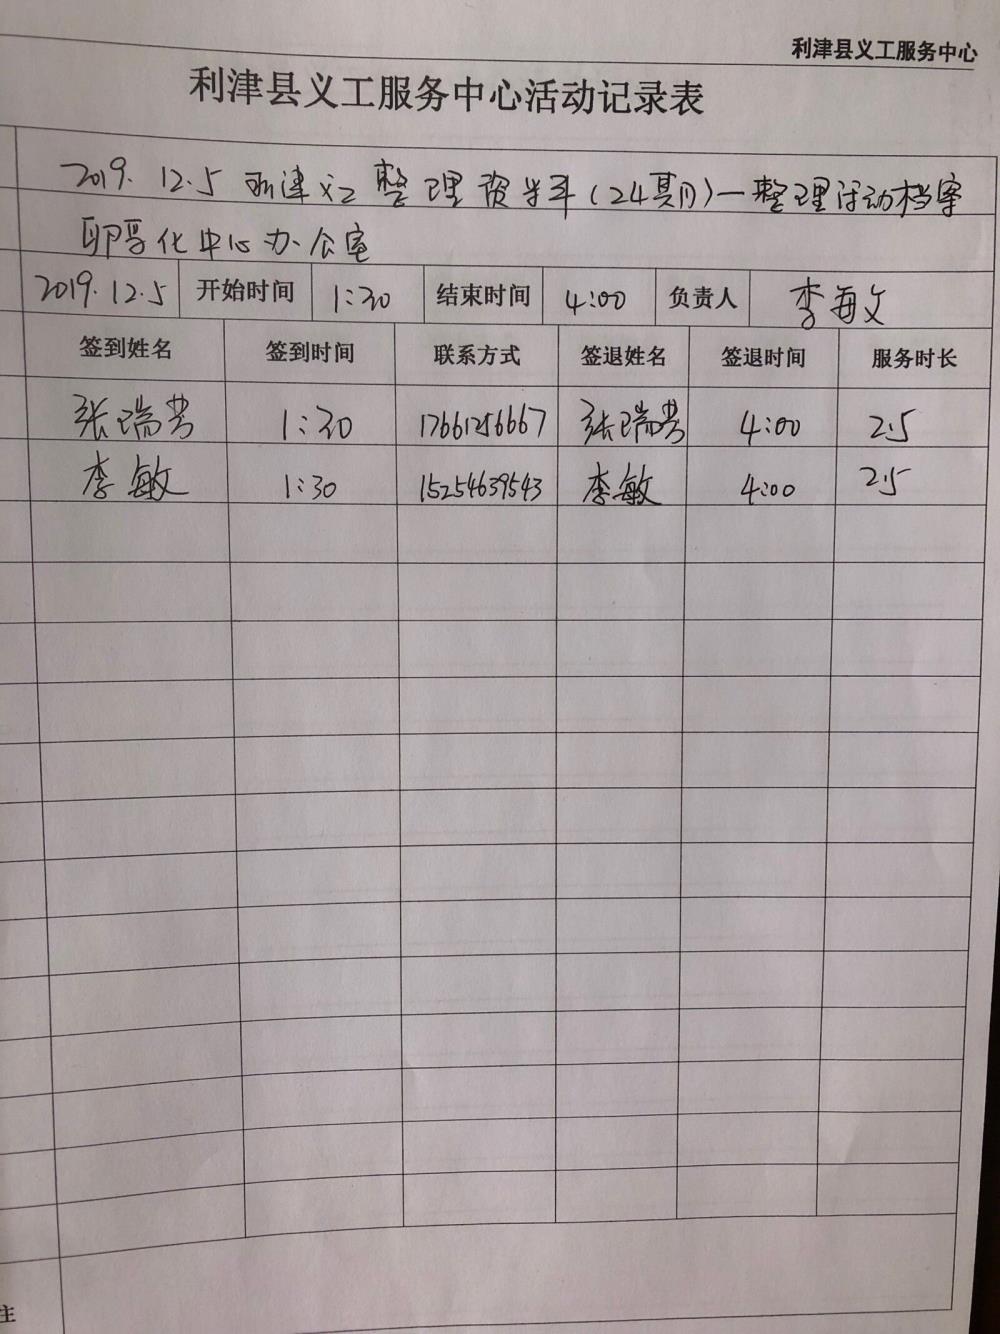 利津县义工服务中心
利津县义工服务中心活动记录表
2019.12.5 利津义工整理资料(24期)—整理活动档案
即孵化中心办公室
2019.12.5 开始时间 1:30 结束时间 4:00 负责人 李敏
签到姓名 签到时间 联系方式 签退姓名 签退时间 服务时长
张瑞芳 1:30 17661256667 张瑞芳 4:00 2.5
李敏 1:30 15254639543 李敏 4:00 2.5
注